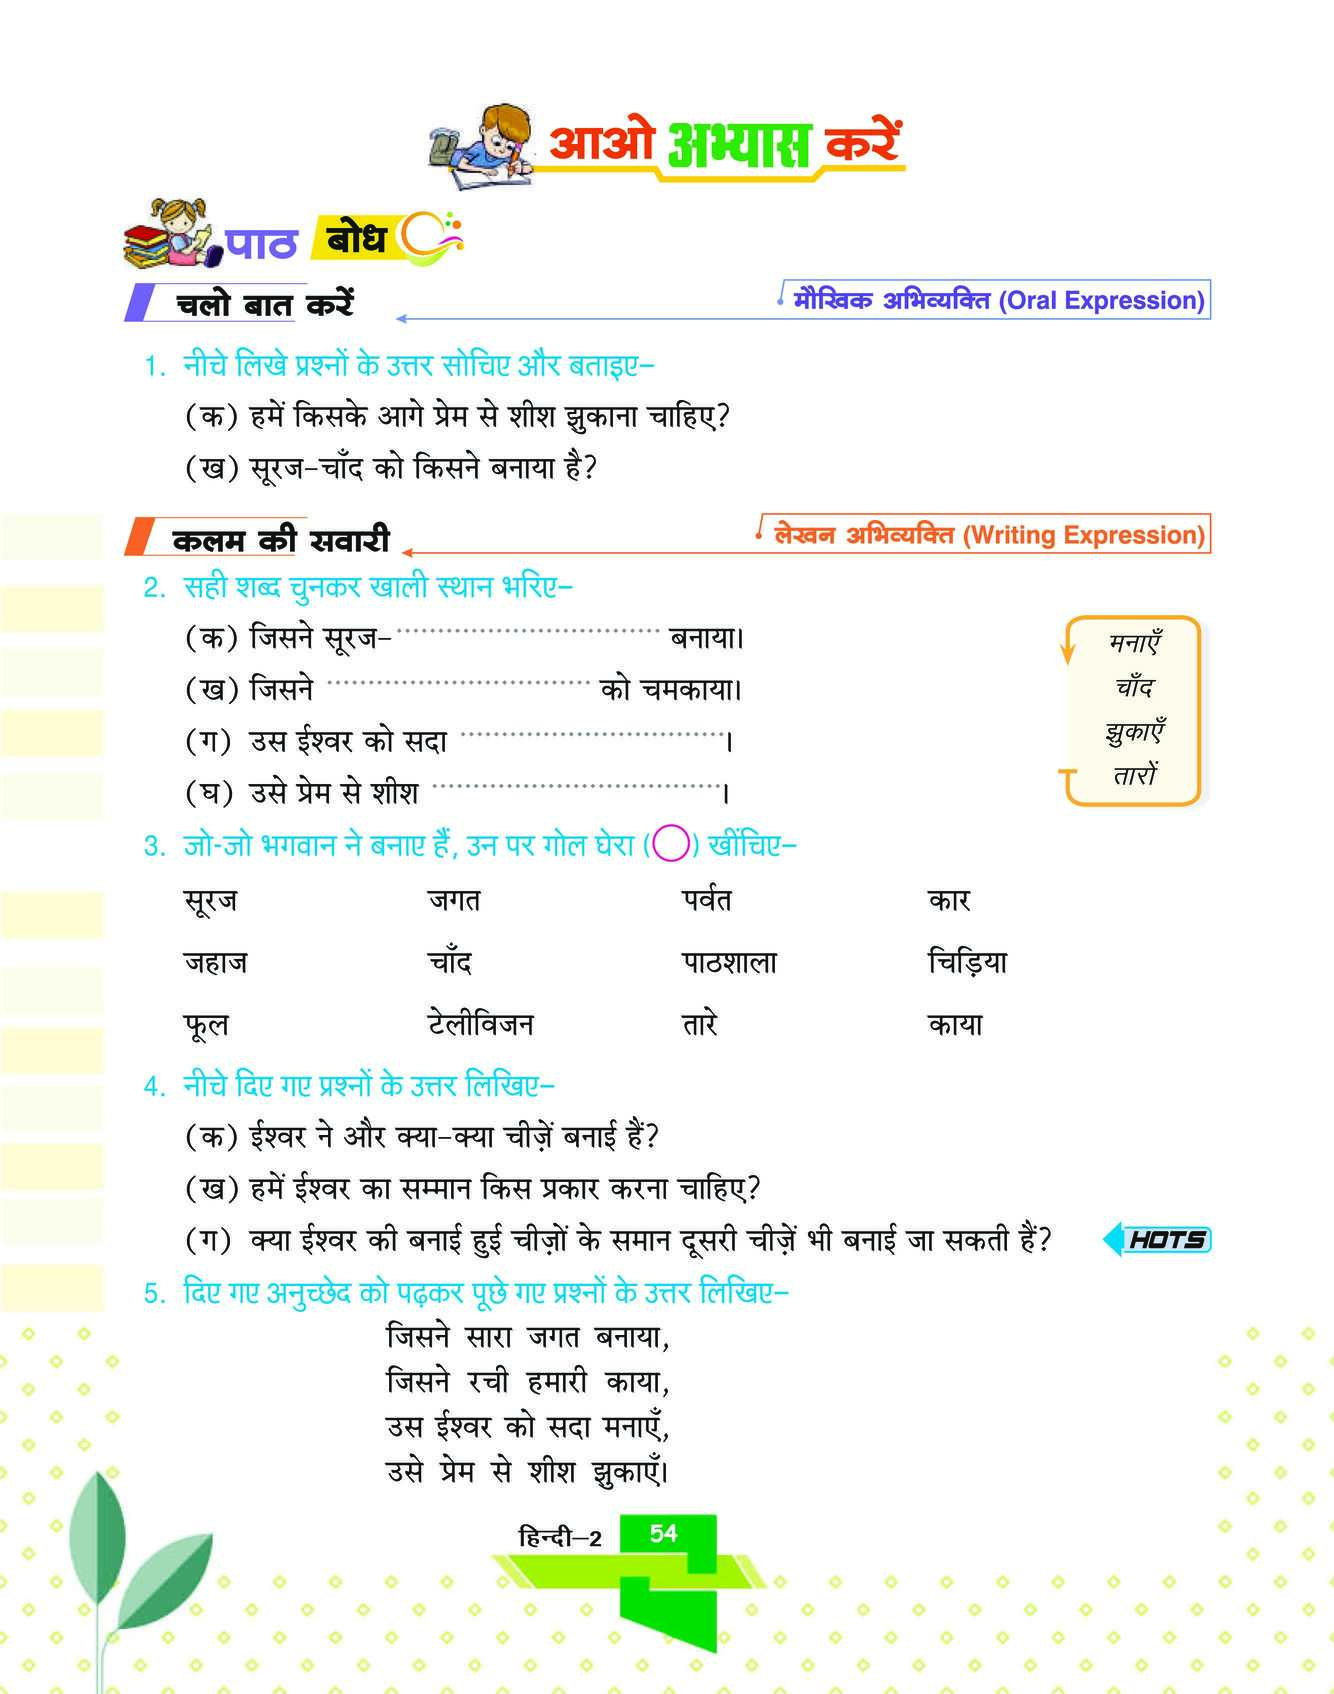 आओ अभ्यास करें
पाठ बोध
चलो बात करें
मौखिक अभिव्यक्ति (Oral Expression)
1. नीचे लिखे प्रश्नों के उत्तर सोचिए और बताइए–
(क) हमें किसके आगे प्रेम से शीश झुकाना चाहिए?
(ख) सूरज–चाँद को किसने बनाया है?
कलम की सवारी
लेखन अभिव्यक्ति (Writing Expression)
2. सही शब्द चुनकर खाली स्थान भरिए–
(क) जिसने सूरज– ................................ बनाया।
(ख) जिसने ................................ को चमकाया।
(ग) उस ईश्वर को सदा ................................।
(घ) उसे प्रेम से शीश ...................................।
मनाएँ
चाँद
झुकाएँ
तारों
3. जो-जो भगवान ने बनाए हैं, उन पर गोल घेरा ( ) खींचिए–
सूरज जगत पर्वत कार
जहाज चाँद पाठशाला चिड़िया
फूल टेलीविजन तारे काया
4. नीचे दिए गए प्रश्नों के उत्तर लिखिए–
(क) ईश्वर ने और क्या–क्या चीज़ें बनाई हैं?
(ख) हमें ईश्वर का सम्मान किस प्रकार करना चाहिए?
(ग) क्या ईश्वर की बनाई हुई चीज़ों के समान दूसरी चीज़ें भी बनाई जा सकती हैं? HOTS
5. दिए गए अनुच्छेद को पढ़कर पूछे गए प्रश्नों के उत्तर लिखिए–
जिसने सारा जगत बनाया,
जिसने रची हमारी काया,
उस ईश्वर को सदा मनाएँ,
उसे प्रेम से शीश झुकाएँ।
हिन्दी–2 54